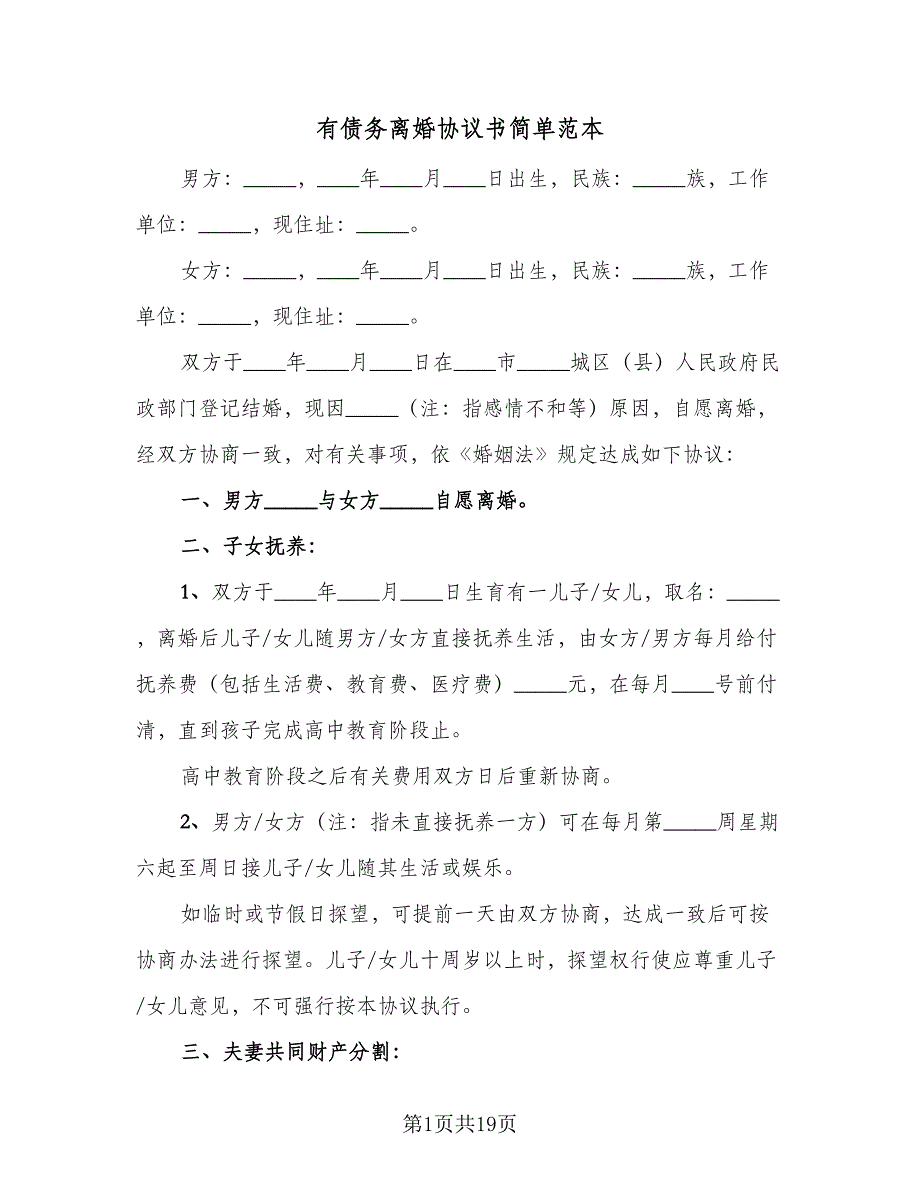 有债务离婚协议书简单范本
男方：_____，____年____月____日出生，民族：_____族，工作
单位：_____，现住址：_____。
女方：_____，____年____月____日出生，民族：_____族，工作
单位：_____，现住址：_____。
双方于____年____月____日在____市_____城区（县）人民政府民
政部门登记结婚，现因_____（注：指感情不和等）原因，自愿离婚，
经双方协商一致，对有关事项，依《婚姻法》规定达成如下协议：
一、男方_____与女方_____自愿离婚。
二、子女抚养：
1、双方于____年____月____日生育有一儿子/女儿，取名：_____
，离婚后儿子/女儿随男方/女方直接抚养生活，由女方/男方每月给付
抚养费（包括生活费、教育费、医疗费）_____元，在每月____号前付
清，直到孩子完成高中教育阶段止。
高中教育阶段之后有关费用双方日后重新协商。
2、男方/女方（注：指未直接抚养一方）可在每月第_____周星期
六起至周日接儿子/女儿随其生活或娱乐。
如临时或节假日探望，可提前一天由双方协商，达成一致后可按
协商办法进行探望。儿子/女儿十周岁以上时，探望权行使应尊重儿子
/女儿意见，不可强行按本协议执行。
三、夫妻共同财产分割：
第1页共19页